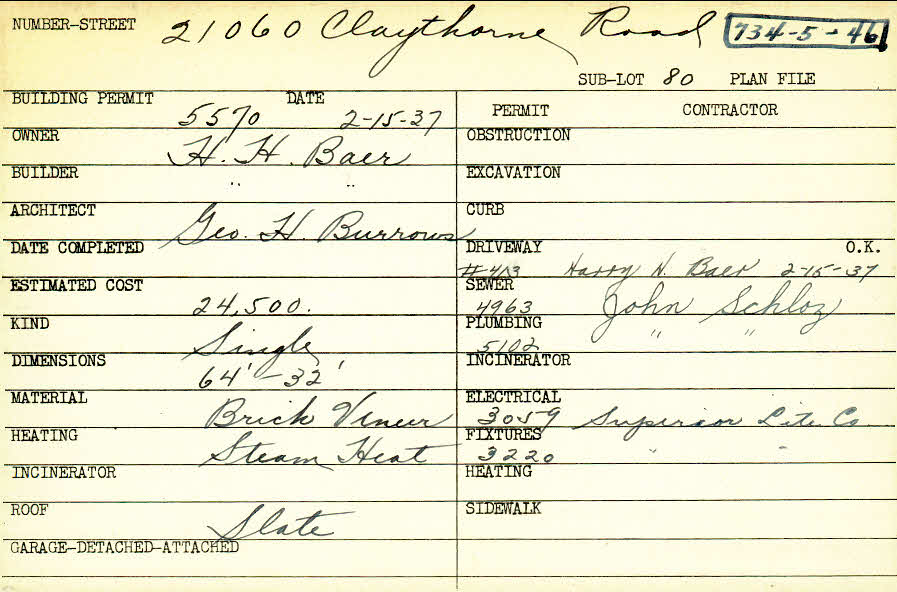 NUMBER-STREET 21060 Claythorne Road 734-5-46
SUB-LOT 80 PLAN FILE
BUILDING PERMIT 5570 DATE 2-15-37
PERMIT CONTRACTOR
OWNER H. H. Baer
OBSTRUCTION
BUILDER " "
EXCAVATION
ARCHITECT Geo. H. Burrows
CURB
DATE COMPLETED
DRIVEWAY O.K.
#413 Harry N. Baer 2-15-37
ESTIMATED COST 24,500.
SEWER 4963 John Schloz
KIND Single
PLUMBING 5102 " "
DIMENSIONS 64' - 32'
INCINERATOR
MATERIAL Brick Vineer
ELECTRICAL 3059 Superior Lite Co.
HEATING Steam Heat
FIXTURES 3220 " "
INCINERATOR
HEATING
ROOF Slate
SIDEWALK
GARAGE-DETACHED-ATTACHED